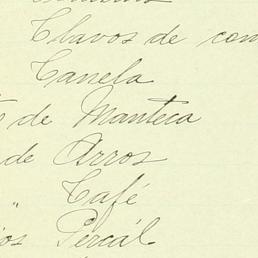 Clavos de com
Canela
de Manteca
de Arros
" Café
Percál